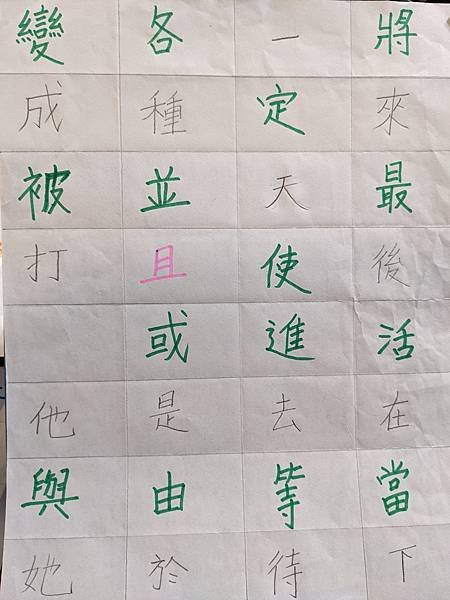 將來最後活在當下
一定天使進去等待
各種並且或是由於
變成被打 他與她